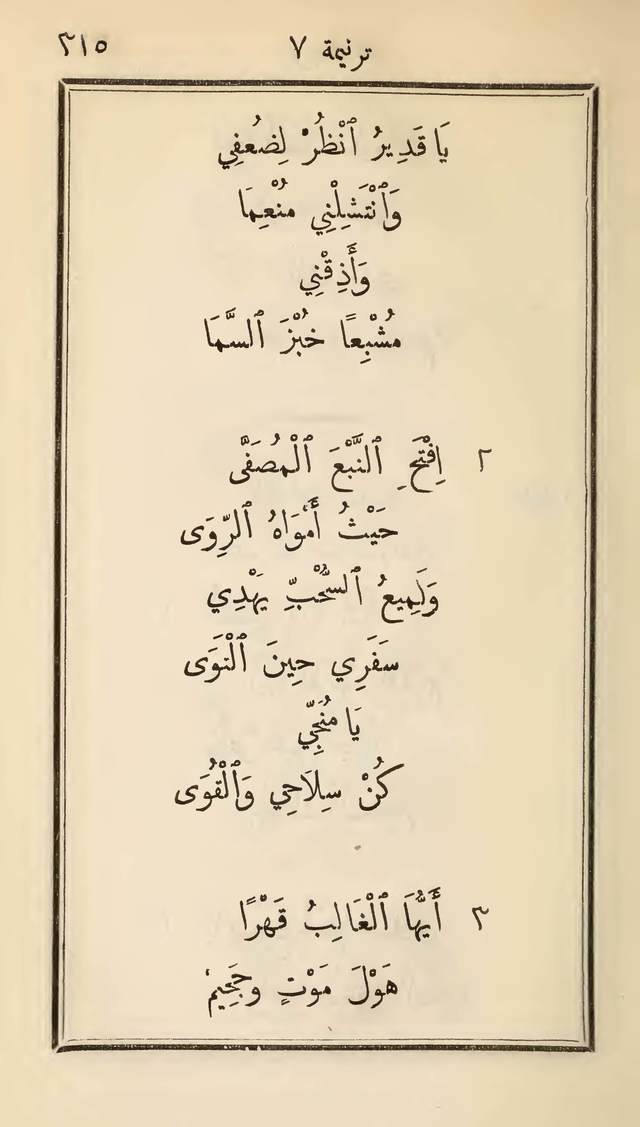 ترنيمة ٧ ٣١٥
يَا قَدِيرُ ٱنْظُرْ لِضُعفِي
وَٱنْتَشِلْنِي مُنْعِمَا
وَأَذِقْنِي
مُشْبِعًا خُبْزَ ٱلسَّمَا
٢ اِفْتَحِ ٱلنَّبْعَ ٱلْمُصَفَّى
حَيْثُ أَمْوَاهُ ٱلرِّوَى
وَلَمِيعُ ٱلسُّحْبِّ يَهْدِي
سَفَرِي حِينَ ٱلْنَوَى
يَا مُنَجِّي
كُنْ سِلَاحِي وَٱلْقُوَى
٣ أَيُّهَا ٱلْغَالِبُ قَهْرًا
هَوْلَ مَوْتٍ وجَحِيمْ